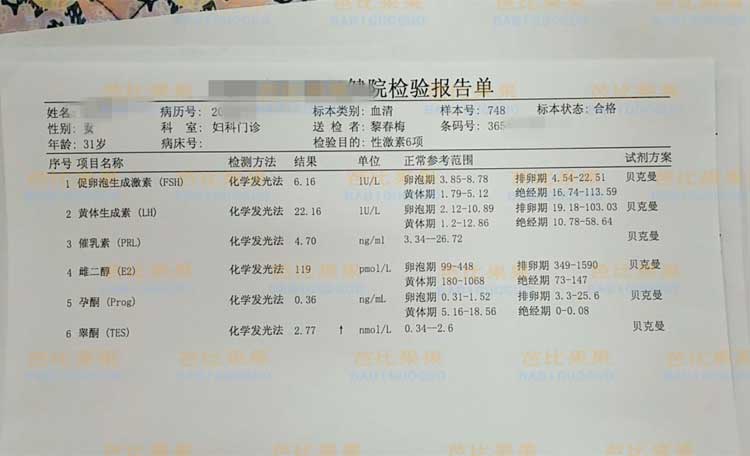 芭比果果 芭比果果 芭比果果 芭比果果
BABIGUOGUO BABIGUOGUO BABIGUOGUO BABIGUOGUO
院检验报告单
姓名 病历号: 20 标本类别: 血清 样本号: 748 标本状态: 合格
性别: 女 科 室: 妇科门诊 送 检 者: 黎春梅 条码号: 365
年龄: 31岁 病床号: 检验目的: 性激素6项
序号 项目名称 检测方法 结果 单位 正常参考范围 试剂方案
1 促卵泡生成激素 (FSH) 化学发光法 6.16 1U/L 卵泡期 3.85-8.78 排卵期 4.54-22.51 贝克曼
黄体期 1.79-5.12 绝经期 16.74-113.59
2 黄体生成素 (LH) 化学发光法 22.16 1U/L 卵泡期 2.12-10.89 排卵期 19.18-103.03 贝克曼
黄体期 1.2-12.86 绝经期 10.78-58.64
3 催乳素 (PRL) 化学发光法 4.70 ng/ml 3.34--26.72 贝克曼
4 雌二醇 (E2) 化学发光法 119 pmol/L 卵泡期 99-448 排卵期 349-1590 贝克曼
黄体期 180-1068 绝经期 73-147
5 孕酮 (Prog) 化学发光法 0.36 ng/mL 卵泡期 0.31-1.52 排卵期 3.3-25.6 贝克曼
黄体期 5.16-18.56 绝经期 0-0.08
6 睾酮 (TES) 化学发光法 2.77 ↑ nmol/L 0.34--2.6 贝克曼
芭比果果 芭比果果 芭比果果 芭比果果
BABIGUOGUO BABIGUOGUO BABIGUOGUO BABIGUOGUO